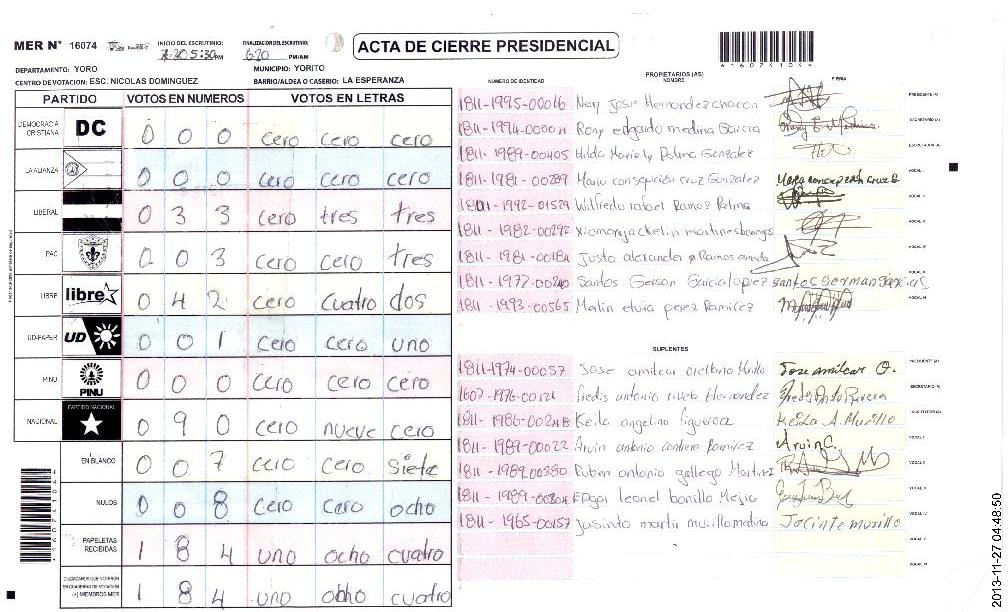 MER N° 16074 INICIO DEL ESCRUTINIO: 5:30 PM FINALIZACION DEL ESCRUTINIO: 6:20 PM/AM ACTA DE CIERRE PRESIDENCIAL
DEPARTAMENTO: YORO MUNICIPIO: YORITO
CENTRO DE VOTACION: ESC. NICOLAS DOMINGUEZ BARRIO/ALDEA O CASERIO: LA ESPERANZA
PARTIDO VOTOS EN NUMEROS VOTOS EN LETRAS
DEMOCRACIA CRISTIANA DC 0 0 0 cero cero cero
LA ALIANZA 0 0 0 cero cero cero
LIBERAL 0 3 3 cero tres tres
PAC 0 0 3 cero cero tres
LIBRE libre 0 4 2 cero cuatro dos
UD-FAPER UD 0 0 1 cero cero uno
PINU PINU 0 0 0 cero cero cero
NACIONAL PARTIDO NACIONAL 0 9 0 cero nueve cero
EN BLANCO 0 0 7 cero cero siete
NULOS 0 0 8 cero cero ocho
PAPELETAS RECIBIDAS 1 8 4 uno ocho cuatro
CIUDADANOS QUE VOTARON EN CUADERNO DE VOTACION (+) MIEMBROS MER 1 8 4 uno ohho cuatro
NUMERO DE IDENTIDAD PROPIETARIOS (AS) NOMBRE FIRMA
1811-1995-00016 Nery Jose Hernandez chacon PRESIDENTE (A)
Rony edgardo medina Garcia SECRETARIO (A)
1811-1989-00405 Hilda Mariely Palma Gonzalez ESCRUTADOR (A)
1811-1981-00289 Maria consepcion cruz Gonzalez VOCAL I
Wilfredo rafael Ramos Palma VOCAL II
1811-1982-00292 VOCAL III
1811-1981-00184 Justo alexander Ramos VOCAL IV
1811-1972-00240 Santos Gerson Garcia lopez VOCAL V
1811-1993-00565 Marlin elvia perez Ramirez VOCAL VI
SUPLENTES
1811-1974-00057 Jose amilcar Jose amilcar O. PRESIDENTE (A)
1607-1976-00121 antonio Hernandez SECRETARIO (A)
Keila angelina figueroa Keida A. Murillo
1811-1989-00022 Arvin antonio Ramirez Arvin C. VOCAL I
1811-1989-00380 Ruben antonio gallego Martinez VOCAL II
leonel bonilla Mejia VOCAL III
1811-1965-00157 Jasinto martir murillo medina Jacinte murillo VOCAL IV
VOCAL V
VOCAL VI
2013-11-27 04:48:50